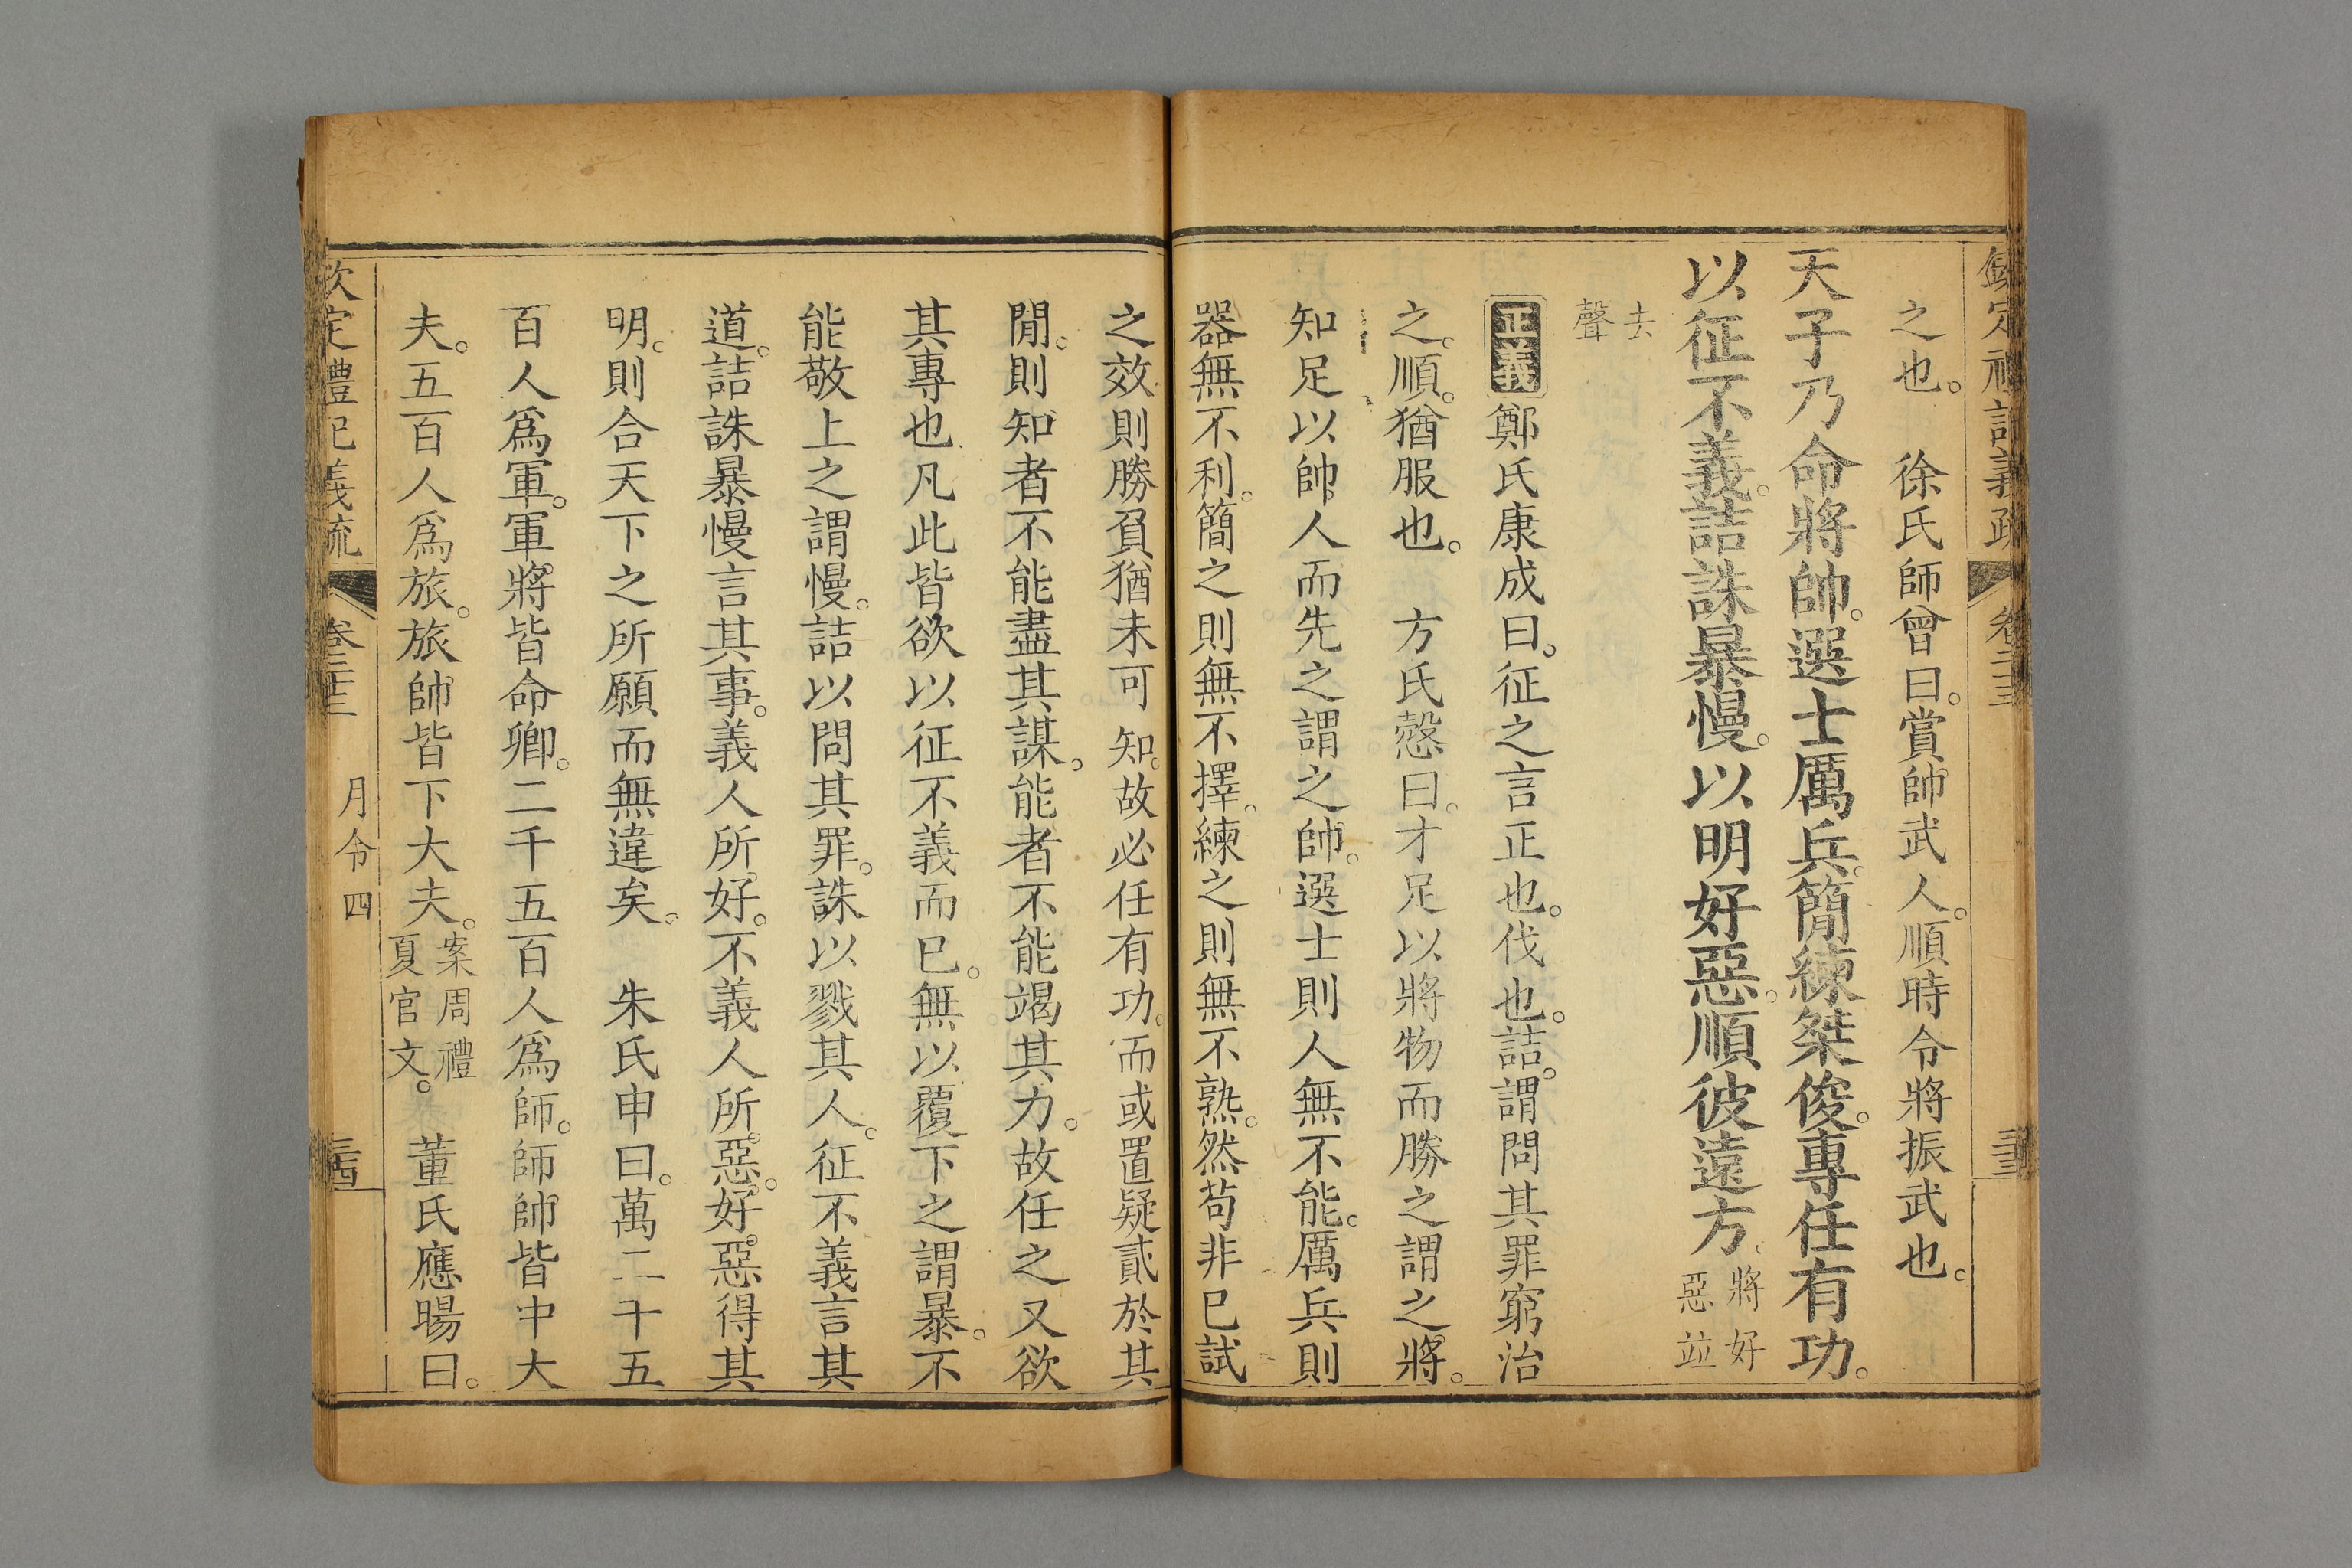 欽定禮記義疏 卷二十三 三十三
之也。　徐氏師曾曰。賞帥武人。順時令將振武也。
天子乃命將帥。選士厲兵。簡練桀俊。專任有功。
以征不義。詰誅暴慢。以明好惡。順彼遠方、將好惡竝
去聲
正義鄭氏康成曰。征之言正也。伐也。詰。謂問其罪窮治
之。順。猶服也。　方氏慤曰。才足以將物而勝之謂之將。
知足以帥人而先之謂之帥。選士則人無不能。厲兵則
器無不利。簡之則無不擇。練之則無不熟。然苟非已試
之效則勝負猶未可知。故必任有功。而或置疑貳於其
閒。則知者不能盡其謀。能者不能竭其力。故任之又欲
其專也凡此皆欲以征不義而已。無以覆下之謂暴。不
能敬上之謂慢。詰以問其罪。誅以戮其人。征不義言其
道。詰誅暴慢言其事。義人所好。不義人所惡。好惡得其
明。則合天下之所願而無違矣。　朱氏申曰。萬二千五
百人爲軍。軍將皆命卿。二千五百人爲師。師帥皆中大
夫。五百人爲旅。旅帥皆下大夫。案周禮夏官文。　董氏應暘曰。
欽定禮記義疏 卷二十三 月令四 三十四